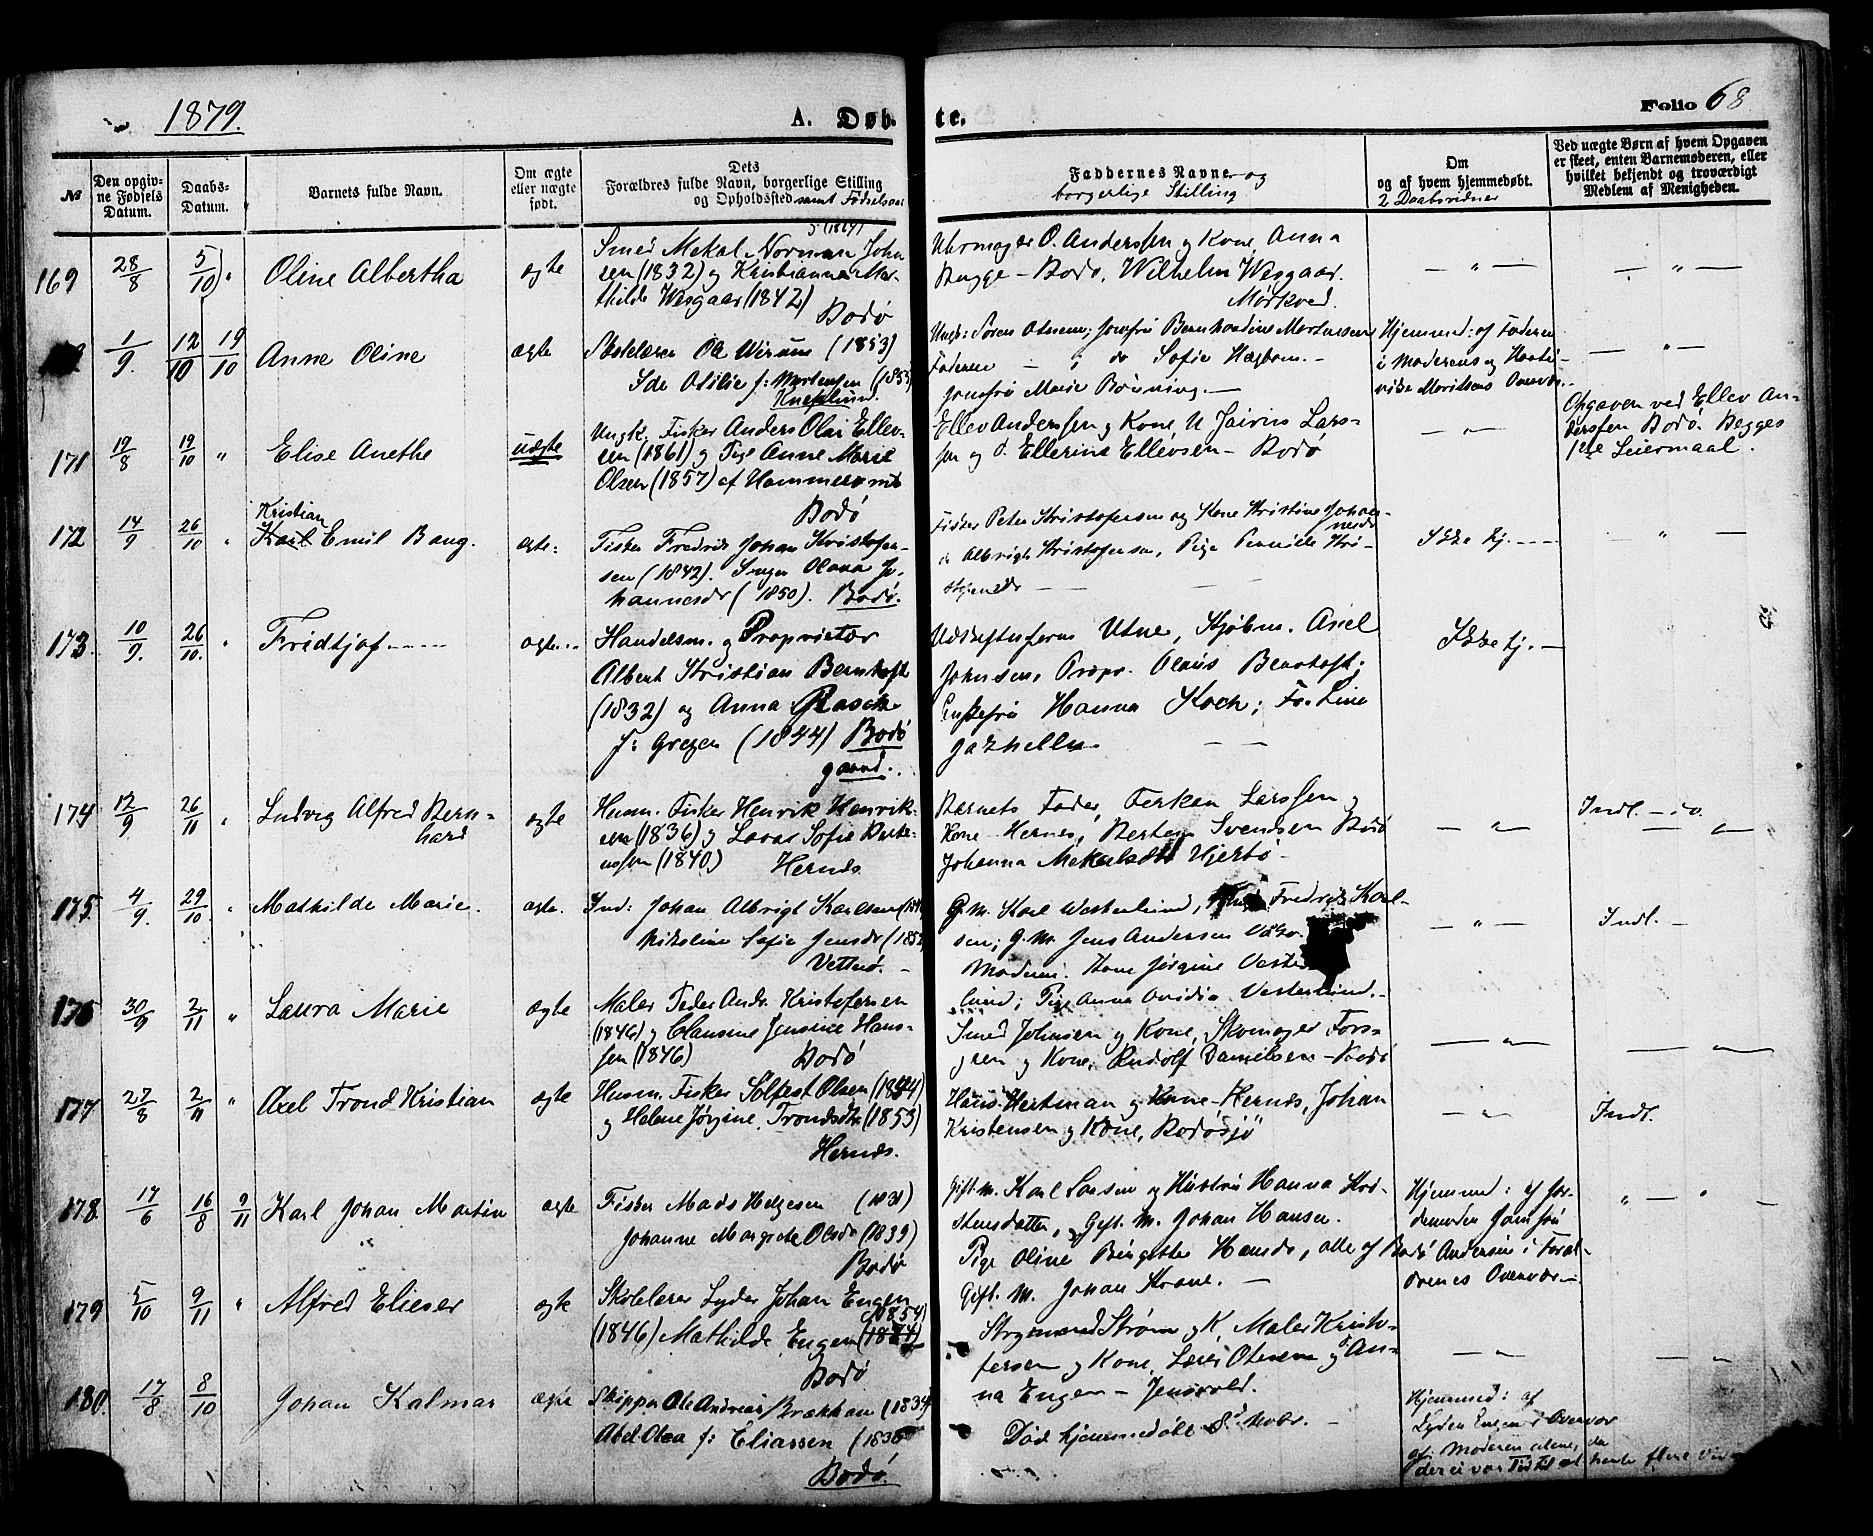 1879.
A. Døb-
te.
Folio 68
№
Den opgiv-
ne Fødsels
Datum.
Daabs-
Datum.
Barnets fulde Navn.
Om ægte
eller uægte
født.
Dets
Forældres fulde Navn, borgerlige Stilling
og Opholdssted samt Fødselsaar
Faddernes Navne og
borgerlige Stilling
Om
og af hvem hjemmedøbt.
2 Daabsvidner
Ved uægte Børn af hvem Opgaven
er skeet, enten Barnemoderen, eller
hvilket bekjendt og troværdigt
Medlem af Menigheden.
169 28/8 5/10 " Oline Albertha ægte
Smed Mekal Norman John
sen (1832) og Kristianna Ma-
thilde Wesgaar (1842)
Bodø
Uhrmager O. Anderssen og Kone Anna
Bugge - Bodø. Wilhelm Wesgaar.
Mørkved.
— " —
— " —
1/9. 12/10 19/10 Anne Oline ægte
Skolelærer Ole Wirum (1853)
Ida Otilie f: Mortensen
Sofie
Jomfru Marie Rønning.
Hjemmed: af Faderen
i Moderens og
— " —
171 19/8 19/10 " Elise Anethe uægte
Ungk. Fisker Anders Olai Ellev-
sen (1861) og Pige Anne Marie
Olsen (1857) af Hammer
Bodø
Ellev Anderssen og Kone U Jairus Lars-
sen og Ellerine Ellevsen - Bodø
— " —
Opgaven ved Ellev An-
derssen Bodø. Begges
1ste Leiermaal.
172 14/9 26/10 "
Kristian
Karl Emil Bang. ægte:
Fisker Fredrik Johan Kristofer-
sen (1842). Olava Jo-
hannesdr (1850). Bodø.
Fisker Peter Kristofersen og Kone Kristine Johan-
nesdr
Albrigt Kristofersen, Pige Pernille Kri-
Ikke hj. ----
" —
173. 10/9. 26/10. " Fridtjof ----- ægte...
Handelsm. og Proprietær
Albert Kristian Bernhoft
(1832) og Anna Rasch
f: Greger (1844) Bodø
gaard..
Utne, Kjøbm. Axel
Johnsen, Propr. Olaus Bernhoft;
Enkefru Hanna Koch; Fr. Line
Jakhelln.
Ikke hj. —
174 12/9 26/10 " Ludvig Alfred Bern-
hard ægte
Husm. Fisker Henrik Henrik-
sen (1836) og Sofie
(1840) Hernes.
Barnets Fader, Larssen og
Kone - Hernes, Svendsen Bodø
Johanna Hjertø -
— " —
Indl. —
— " —
175. 4/9. 29/10. " Mathilde Marie. ægte.
Ind: Johan Albrigt Karlsen
Nikoline Sofie Jensdr
G. M. Karl Westerlund, Fredrik Karl-
sen; G. M. Jens Andersen
Moderen. Kone Jørgine Vester
lund; Pige Anna Ovidia Vesterlund.-
— " —
Indl. —
176 30/9 2/11 " Laura Marie ægte
Maler Peder Andr. Kristofersen
(1846) og Clausine Jensine Hans-
sen (1846) Bodø
Smed Johnsen og Kone, Skomager Fors-
gren og Kone, Rudolf Danielsen - Bodø
— " —
— " —
177 27/8 2/11 " Axel Trond Kristian ægte
Husm. Fisker Solfest Olsen
og Helene Jørgine Trondsdtr (1853)
Hernes.
Hartman og Kone - Hernes, Johan
Kristensen og Kone, Bodøsjø
— " —
Indl.
178. 17/6 16/8 9/11 Karl Johan Martin ægte
Fisker Mads Helgesen (1831)
Johanne Margrete Olsdr (1839)
Bodø
Gift. M. Karl Larsen og Hustru Hanna Kri-
stensdatter, Gift. M. Johan Hansen.
Pige Oline Birgitte Hansdr, alle af Bodø
Gift. M. Johan Krane. —
Hjemmed: af Jor-
demoder Jomfru
Andersen i Foræl-
drenes Overvær.-
" — " —
179 5/10 9/11 " Alfred Elieser ægte
Skolelærer Lyder Johan Engen
(1854)
(1846) Mathilde Engen
Bodø
Strømand Strøm og K, Maler Kristo-
fersen og Kone, Lærer og An-
na Engen - Jensvold.
— " —
— " —
180. 17/8 8/10 Johan Kalmar ægte
Skipper Ole Andreas Brækhan
Abel Olea f: Eliassen
Bodø.
Død hjemmedøbt 8d Novbr. —
Hjemmed: af
Lyder Engen i Overvær
af Moderen alene, da
der ei var Tid til at hente flere